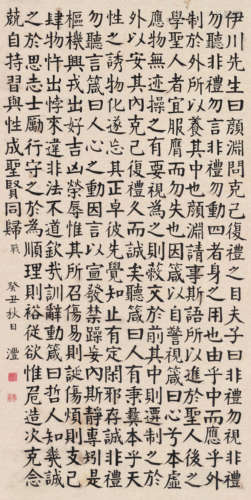 伊川先生曰顏淵問克己復禮之目夫子曰非禮勿視非禮
勿聽非禮勿言非禮勿動四者身之用也由乎中而應乎外
制於外所以養其中顏淵請事斯語所以進於聖人後之
學聖人者宜服膺而勿失也因箴以自警視箴曰心兮本虛
應物無迹操之有要視為之則蔽交於前其中則遷制之於
外以安其內克己復禮久而誠矣聽箴曰人有秉彝本乎天
性之誘物化遂忘其正卓彼先覺知止有定閑邪存誠非禮
勿聽言箴曰人心之動因言以宣發禁躁妄內斯靜專矧是
樞機興戎出好吉凶榮辱惟其所召傷易則誕傷煩則支己
肆物忤出悖來違非法不道欽哉訓辭動箴曰哲人知幾誠
之於思志士勵行守之於為順理則裕從欲惟危造次克念
兢自持習與性成聖賢同歸
癸丑秋日 灃